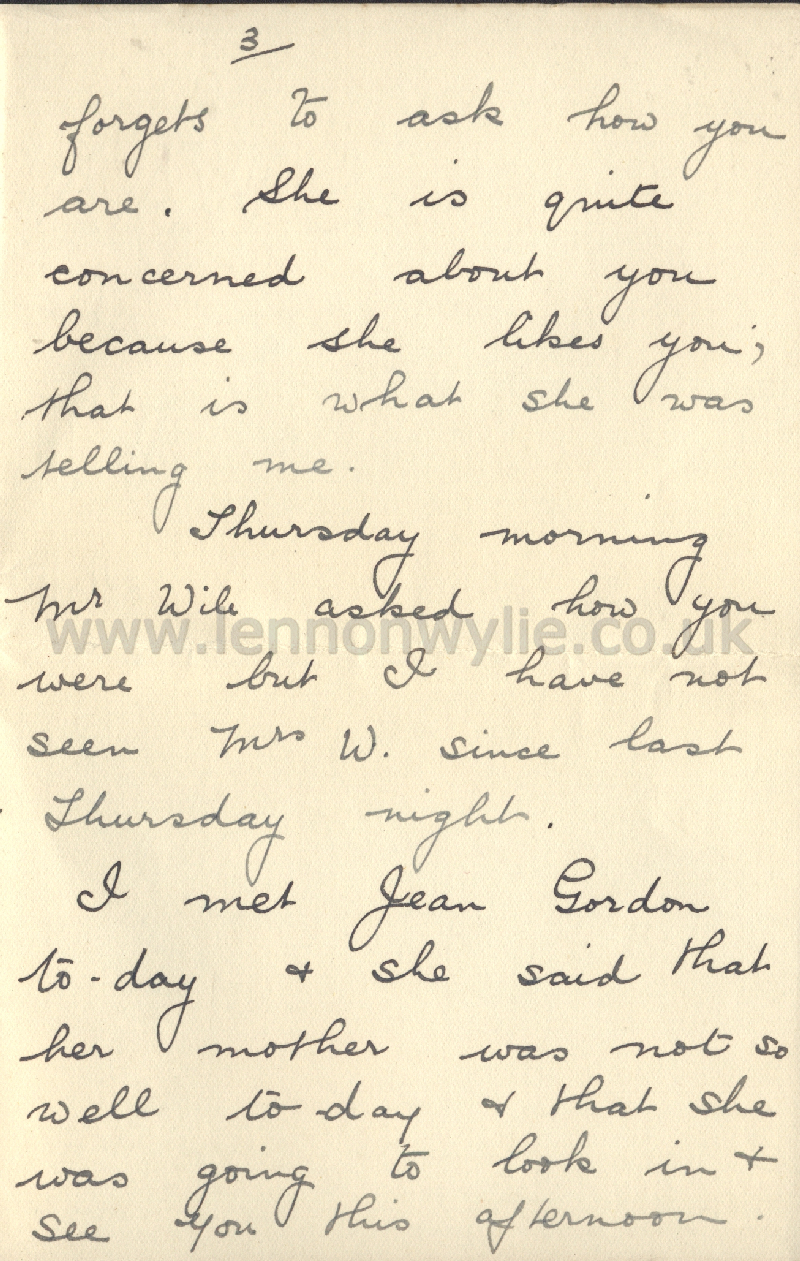 3
forgets to ask how you
are. She is quite
concerned about you
because she likes you;
that is what she was
telling me.
Thursday morning
Mr Wile asked how you
www.lennonwylie.co.uk
were but I have not
seen Mrs W. since last
Thursday night.
I met Jean Gordon
to-day & she said that
her mother was not so
well to-day & that she
was going to look in &
see you this afternoon.